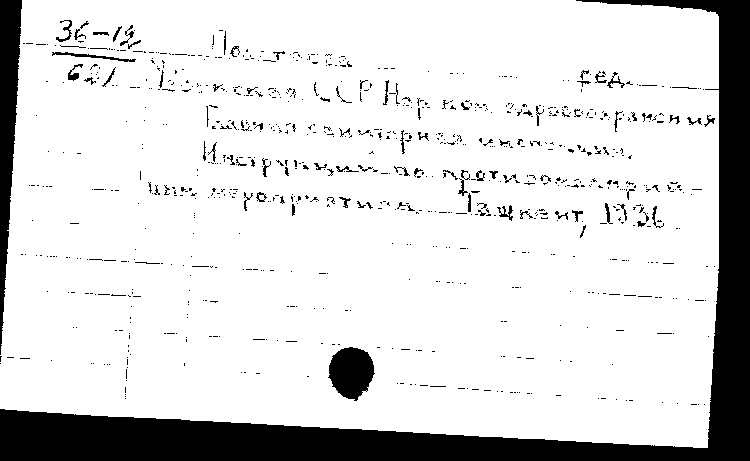 36-12
621
ред.
Узбекская ССР Нар. ком. здравоохранения
Главная санитарная инспекция.
Инструкций по противомалярий-
ным мероприятиям. Ташкент, 1936